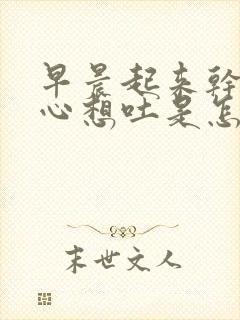 早晨起来幹
心想吐是怎
末世文人